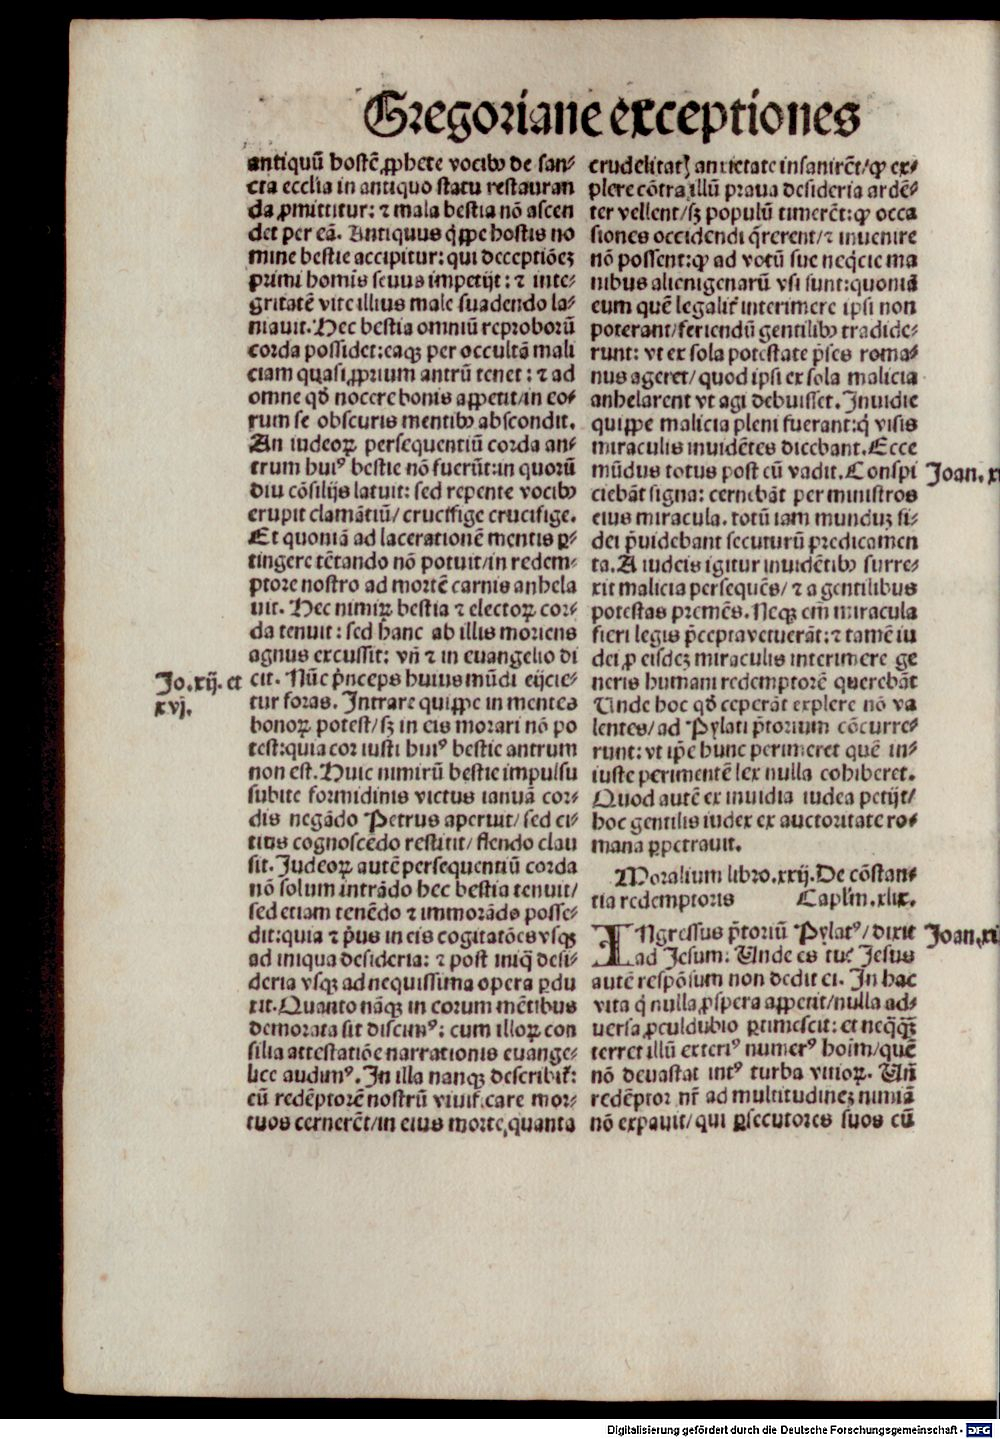 Gregoriane exceptiones
antiquū hostē ꝓphete vocibꝰ de san⸗
cta ecclīa in antiquo statu restauran
da ꝓmittitur: ⁊ mala bestia nō ascen
det per eā. Antiquus q̄ꝑpe hostis no
mine bestie accipitur: qui deceptiōeꝫ
primi homīs seuus impetijt: ⁊ inte⸗
gritatē vite illius male suadendo la⸗
niauit. Hec bestia omniū reproborū
corda possidet: eaqꝫ per occultā mali
ciam quasi ꝓprium antrū tenet: ⁊ ad
omne qd̄ nocere bonis aꝑpetit/in eo⸗
rum se obscuris mentibꝰ abscondit.
An iudeoꝝ persequentiū corda an⸗
trum huiꝰ bestie nō fuerūt: in quorū
diu cōsilijs latuit: sed repente vocibꝰ
erupit clamātiū/ crucifige crucifige.
Et quoniā ad lacerationē mentis ꝑ⸗
tingere tētando nō potuit/in redem⸗
ptore nostro ad mortē carnis anhela
uit. Hec nimiꝝ bestia ⁊ electoꝝ cor⸗
da tenuit: sed hanc ab illis moriens
agnus excussit: vn̄ ⁊ in euangelio di
Jo.xij. et
xvj.
cit. Nūc p̄nceps huius mūdi eijcie⸗
tur foras. Intrare quiꝑpe in mentes
bonoꝝ potest/sꝫ in eis morari nō po
test: quia cor iusti huiꝰ bestie antrum
non est. Huic nimirū bestie impulsu
subite formidinis victus ianuā cor⸗
dis negādo Petrus aperuit/ sed ci⸗
tius cognoscēdo restitit/ flendo clau
sit. Judeoꝝ autē persequentiū corda
nō solum intrādo hec bestia tenuit/
sed etiam tenēdo ⁊ immorādo posse⸗
dit: quia ⁊ p̄us in eis cogitatōes vsqꝫ
ad iniqua desideria: ⁊ post iniq̄ desi⸗
deria vsqꝫ ad nequissima opera ꝑdu
xit. Quanto nāqꝫ in eorum mētibus
demorata sit discimꝰ: cum illoꝝ con
silia attestatiōe narrationis euange⸗
lice audimꝰ. In illa nanqꝫ describit̄:
cū redēptorē nostrū viuificare mor⸗
tuos cernerēt/in eius morte, quanta
crudelitatꝭ anxietate insanirēt/ꝙ ex⸗
plere cōtra illū praua desideria ardē⸗
ter vellent/sꝫ populū timerēt: ꝙ occa
siones occidendi q̄rerent/⁊ inuenire
nō possent: ꝙ ad votū sue neq̄cie ma
nibus alienigenarū vsi sunt: quoniā
eum quē legalit̄ interimere ipsi non
poterant/feriendū gentilibꝰ tradide⸗
runt: vt ex sola potestate p̄ses roma⸗
nus ageret/ quod ipsi ex sola malicia
anhelarent vt agi debuisset. Inuidie
quiꝑpe malicia pleni fuerant: q̄ visis
miraculis inuidētes dicebant. Ecce
mūdus totus post eū vadit. Conspi
ciebāt signa: cernebāt per ministros
eius miracula. totū iam munduꝫ fi⸗
dei p̄uidebant secuturū predicamen
ta. A iudeis igitur inuidētibꝰ surre⸗
xit malicia persequēs/ ⁊ a gentilibus
potestas premēs. Neqꝫ em̄ miracula
fieri legis p̄cepta vetuerāt: ⁊ tamē iu
dei ꝓ eisdeꝫ miraculis interimere ge
neris humani redemptorē querebāt
Unde hoc qd̄ ceperāt explere nō va
lentes/ad Pylati p̄torium cōcurre⸗
runt: vt ip̄e hunc perimeret quē in⸗
iuste perimentē lex nulla cohiberet.
Quod autē ex inuidia iudea petijt/
hoc gentilis iudex ex auctoritate ro⸗
mana ꝑpetrauit.
Moralium libro.xxij. De cōstan⸗
tia redemptoris Caplm̄.xlix.
INgressus p̄toriū Pylatꝰ/ dixit
ad Jesum: Unde es tu? Jesus
autē respōsum non dedit ei. In hac
vita q̄ nulla ꝓspera aꝑpetit/nulla ad⸗
uersa ꝓculdubio ꝑtimescit: et neq̄qꝫ
terret illū exteriꝰ numerꝰ hoīm/quē
nō deuastat intꝰ turba vitioꝝ. Un̄
redēptor nr̄ ad multitudineꝫ nimiā
nō expauit/ qui ꝑsecutores suos cū
Joan. x
Joan. xi
Digitalisierung gefördert durch die Deutsche Forschungsgemeinschaft - DFG